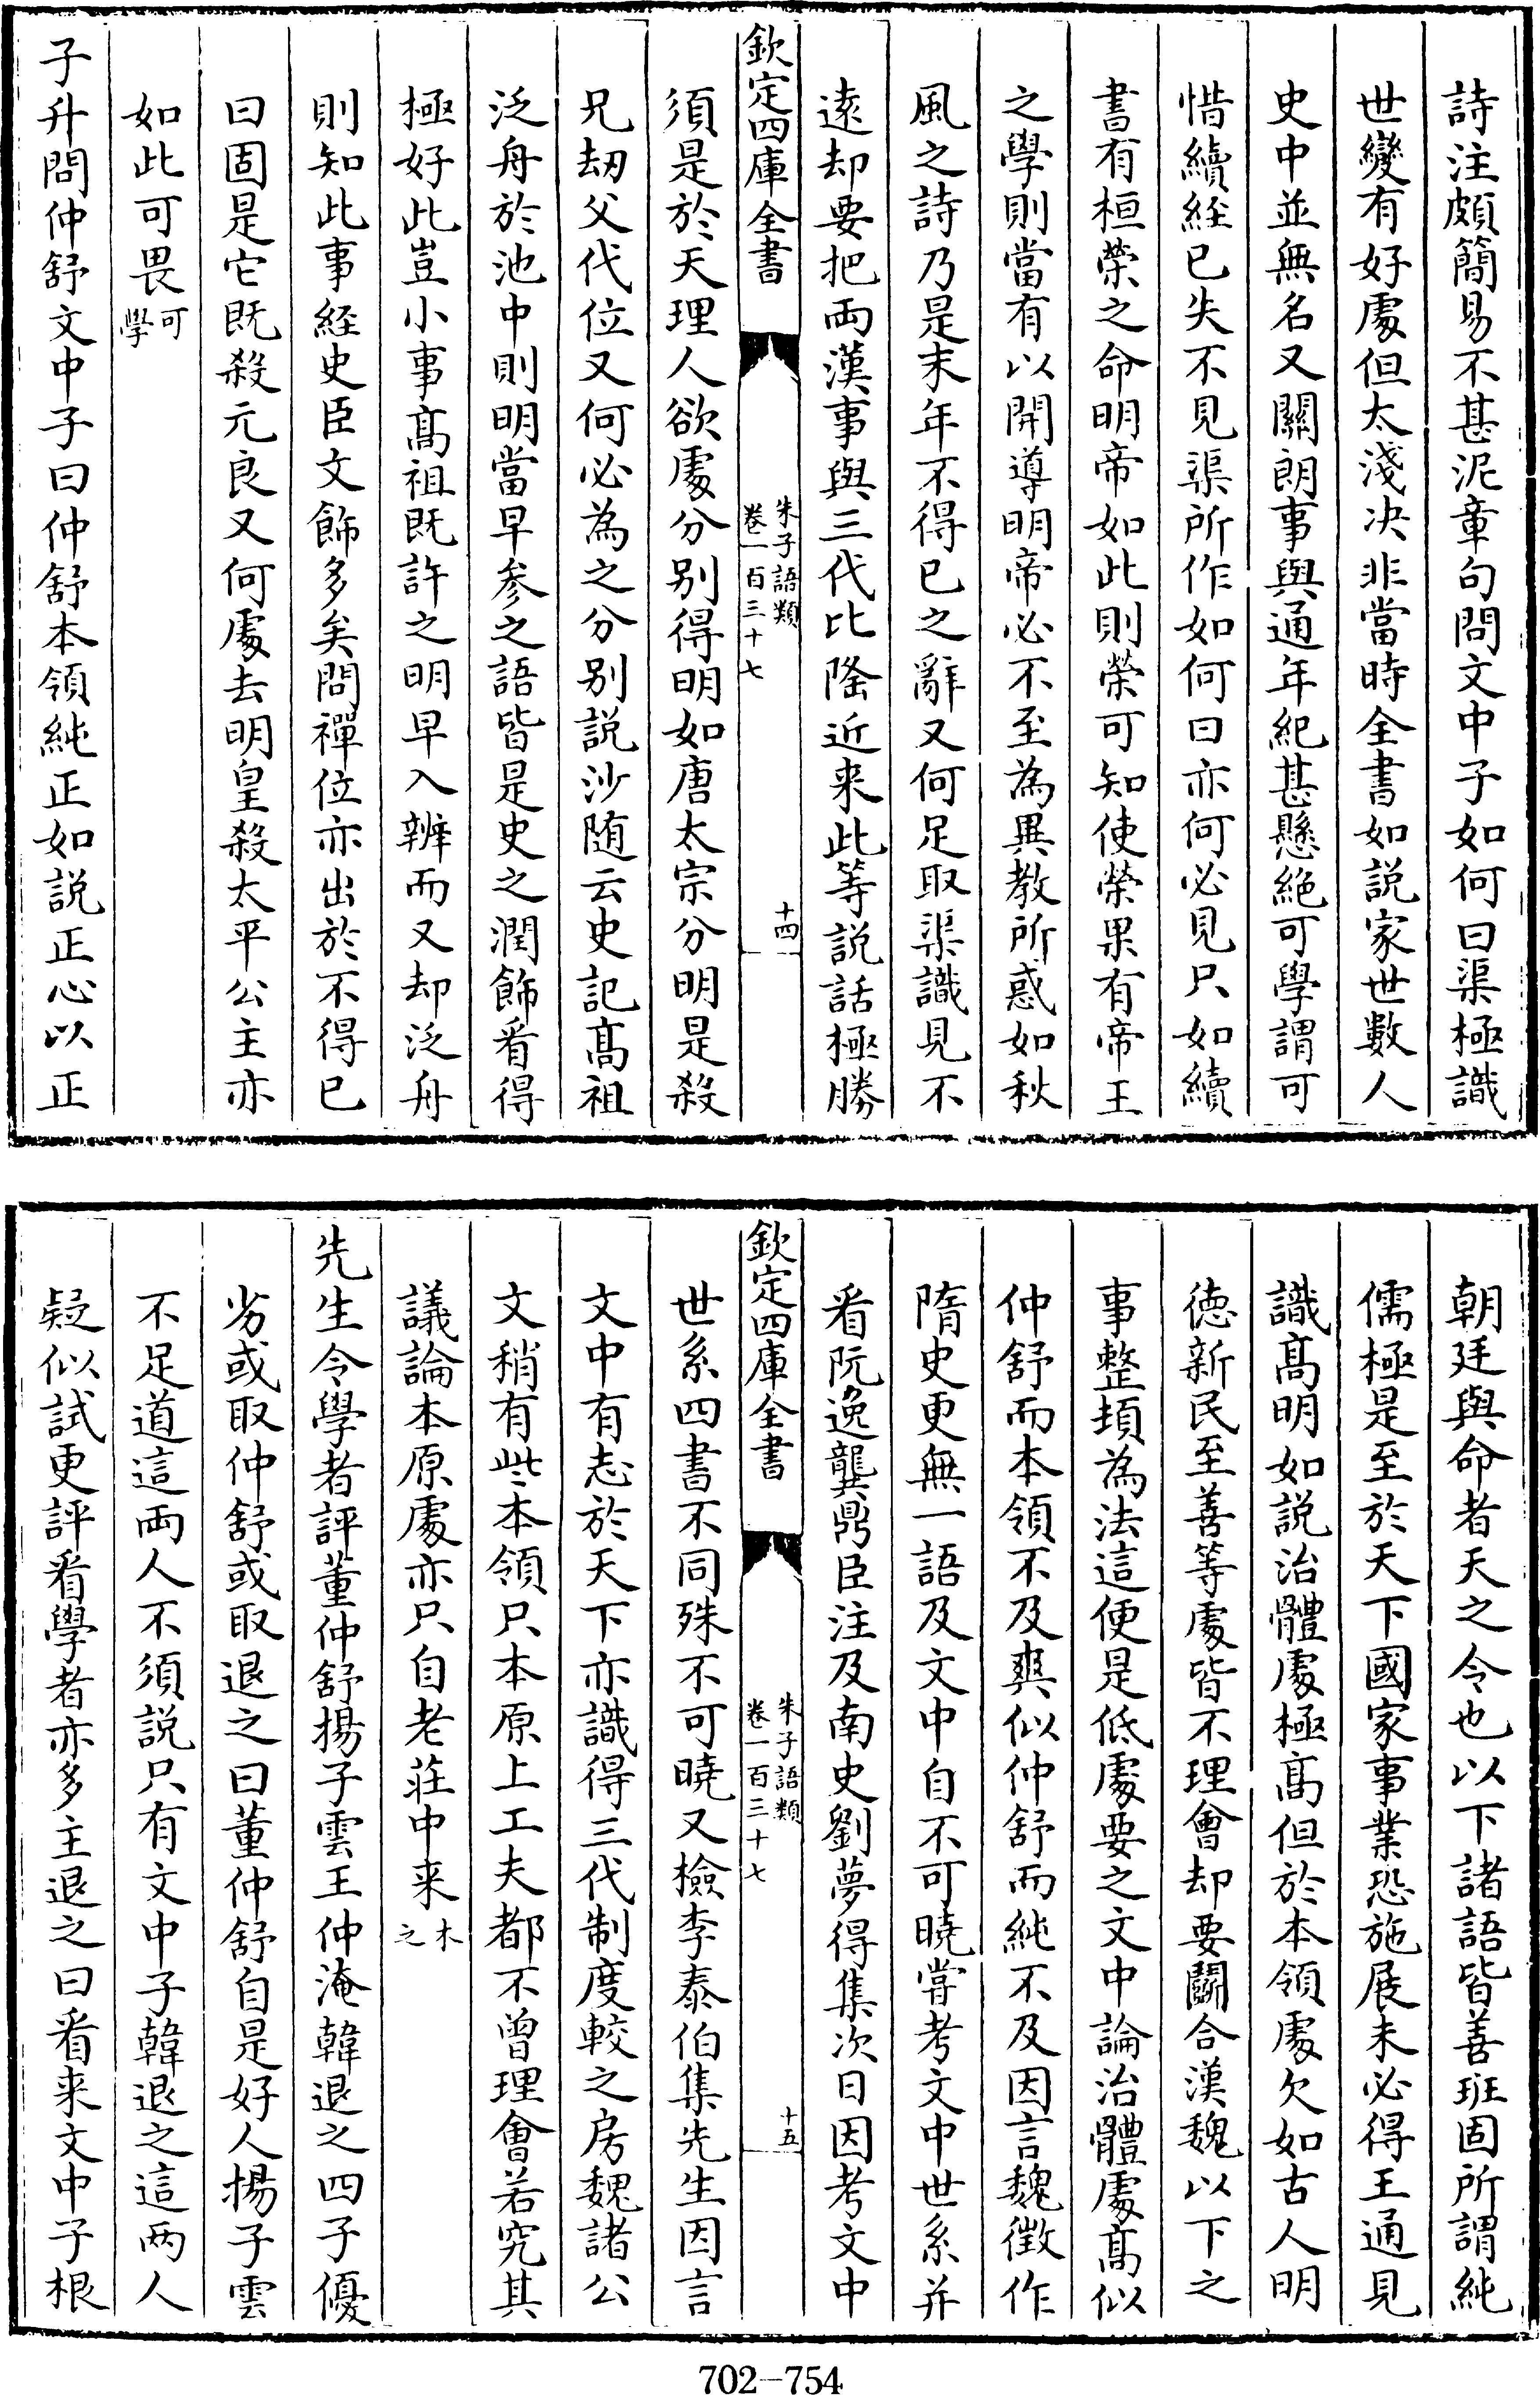 詩注頗簡易不甚泥章句問文中子如何曰渠極識
世變有好處但太淺決非當時全書如説家世數人
史中並無名又關朗事與通年紀甚懸絶可學謂可
惜續經已失不見渠所作如何曰亦何必見只如續
書有桓榮之命明帝如此則榮可知使榮果有帝王
之學則當有以開導明帝必不至為異教所惑如秋
風之詩乃是末年不得已之辭又何足取渠識見不
遠却要把兩漢事與三代比隆近来此等説話極勝
欽定四庫全書
朱子語類
卷一百三十七
十四
須是於天理人欲處分别得明如唐太宗分明是殺
兄劫父代位又何必為之分别説沙随云史記髙祖
泛舟於池中則明當早参之語皆是史之潤飾看得
極好此豈小事髙祖既許之明早入辨而又却泛舟
則知此事經史臣文飾多矣問禪位亦出於不得已
曰固是它既殺元良又何處去明皇殺太平公主亦
如此可畏可學
子升問仲舒文中子曰仲舒本領純正如説正心以正
朝廷與命者天之令也以下諸語皆善班固所謂純
儒極是至於天下國家事業恐施展未必得王通見
識髙明如説治體處極髙但於本領處欠如古人明
徳新民至善等處皆不理會却要鬬合漢魏以下之
事整頓為法這便是低處要之文中論治體處髙似
仲舒而本領不及爽似仲舒而純不及因言魏徵作
隋史更無一語及文中自不可曉嘗考文中世系并
看阮逸龔鼎臣注及南史劉夢得集次日因考文中
欽定四庫全書
朱子語類
卷一百三十七
十五
世系四書不同殊不可曉又檢李泰伯集先生因言
文中有志於天下亦識得三代制度較之房魏諸公
文稍有些本領只本原上工夫都不曽理會若究其
議論本原處亦只自老莊中来木之
先生令學者評董仲舒揚子雲王仲淹韓退之四子優
劣或取仲舒或取退之曰董仲舒自是好人揚子雲
不足道這兩人不須説只有文中子韓退之這兩人
疑似試更評看學者亦多主退之曰看来文中子根
702-754